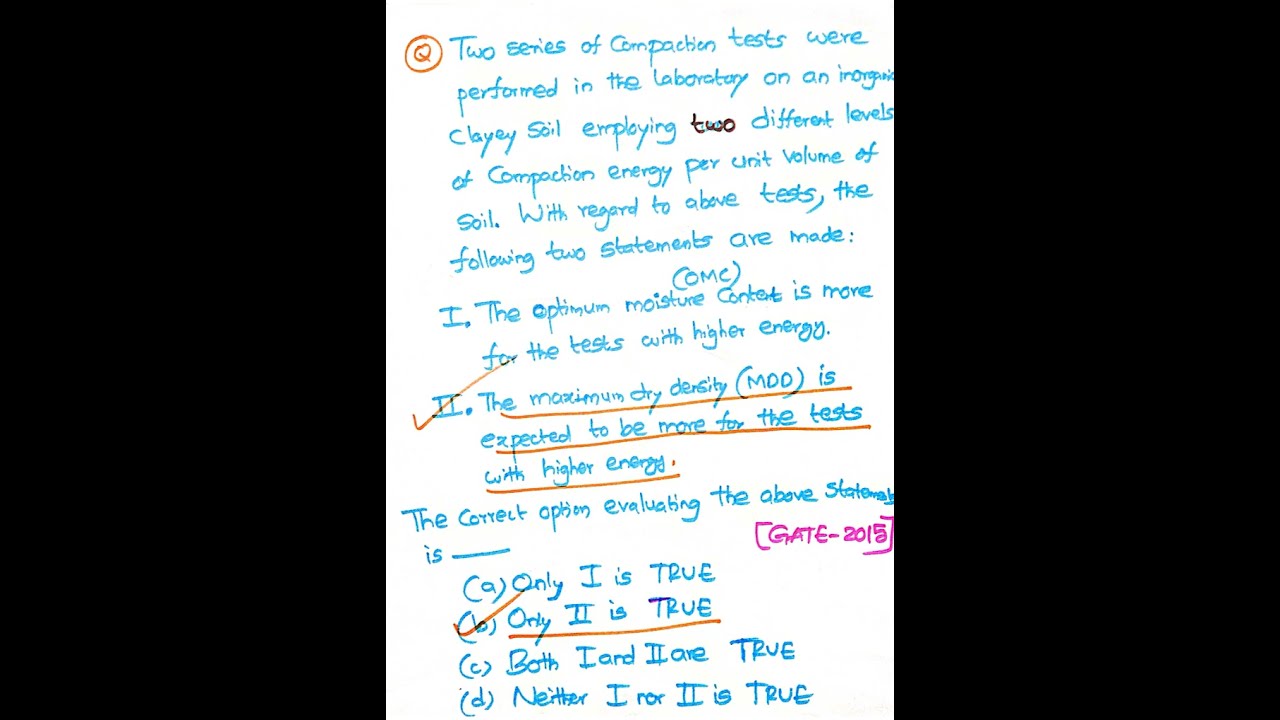 Q Two series of Compaction tests were
performed in the laboratory on an inorganic
Clayey Soil employing two different levels
of Compaction energy per unit volume of
soil. With regard to above tests, the
following two statements are made:
(OMC)
I. The optimum moisture Content is more
for the tests with higher energy.
II. The maximum dry density (MDD) is
expected to be more for the tests
with higher energy.
The Correct option evaluating the above Statements
is
[GATE-2015]
(a) Only I is TRUE
(b) Only II is TRUE
(c) Both I and II are TRUE
(d) Neither I nor II is TRUE